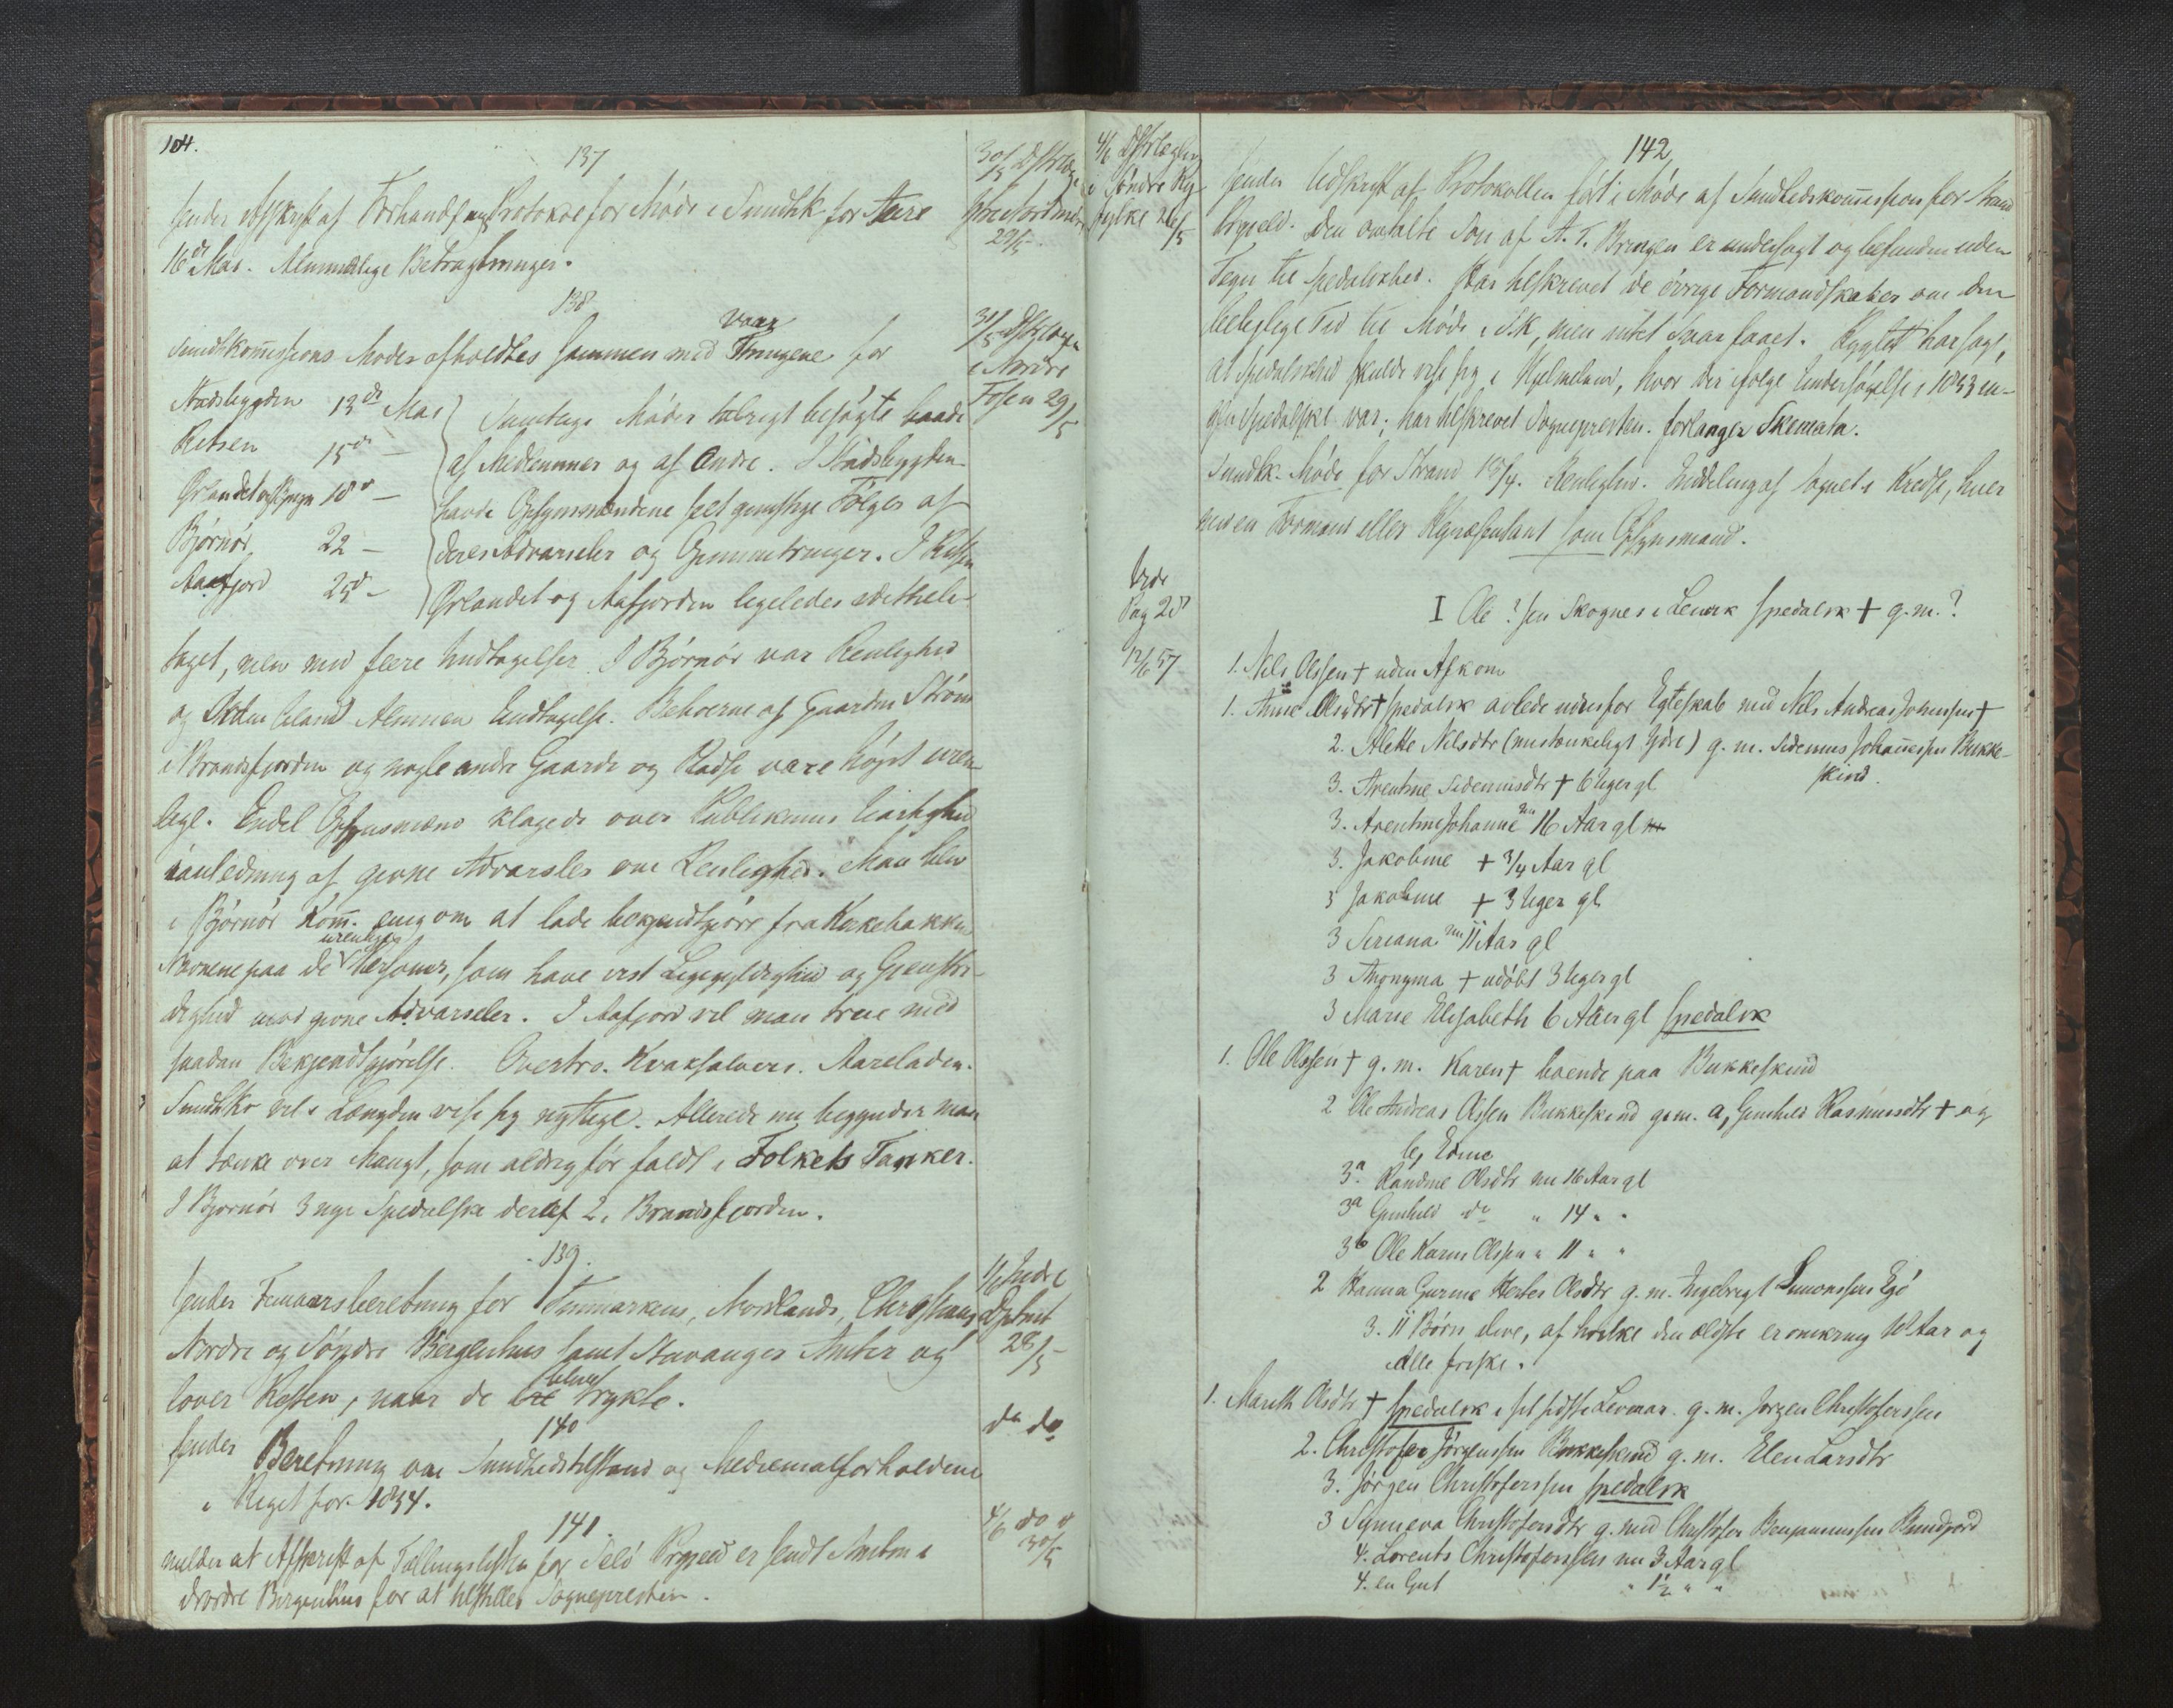 104.
137
30/5 Dstrlæge
sender Afskrift af Forhandlings Protokol for Møde i Sundhk for Aure
Nordmøre
16de Mai. Almindelige Betragtninger.
29/5
138
Sundhkommissions Møder afholdtes sammen med Vaar Thingene for
31/5 Dstrlæge
i Nordre
Fosen 29/5
Stadsbygden 13de Mai
Retsen 15de —
Ørlandet og Bjugn 18de —
Bjørnør 22 —
Aaafjord 25de —
Samtlige Møder talrigt besøgte baade
af Medlemmer og af Andre. I Stadsbygden
havde Opsynsmændene seet gunstige Følger af
deres Advarseler og Gjennemtringer. I Ritsen
Ørlandet og Aafjorden ligeledes
taget, men med flere Undtagelser. I Bjørnør var Renlighed
og Orden iblandt Almuen Undtagelse. Beboerne af Gaarden Strøm
i Brandsfjorden og nogle andre Gaarde og Pladse vare højst uren-
lige. Endel Opsynsmænd klagede over Publikums
i anledning af givne Advarsler om Renlighed. Man blev
i Bjørnør Komm. enig om at lade bekjendtgjøre fra Kirkebakken
Navnene paa de urenlige Personer, som have vist Ligegyldighed og Gjenstri-
dighed mod givne Advarseler. I Aafjord vil man true med
saadan Bekjendtgjørelse. Overtro. Kvaksalveri. Aareladen.
Sundhko vil i Længden vise sig nyttige. Allerede nu begynder man
at tænke over Mangt, som aldrig før faldt i Folkets Tanker.
I Bjørnør 3 nye Spedalske deraf 2 i Brandsfjorden.
139.
1/6 Indre
sender Femaarsberetning for Finmarkens, Nordlands, Christians
Dptmt
Nordre og Søndre Bergenhus samt Stavanger Amter og
28/5
lover Resten, naar de ere blevne trykte.
140
do do
sender Beretning om Sundhedstilstand og Medicinalforholdene
i Riget for 1854.
141.
4/6 do do
30/5
melder at Afskrift af Tællingslisten for Selø Prgjeld er sendt Amtm i
Nordre Bergenhus for at tilstilles Sognepresten.
4/6 Dstrlægen
i Søndre Ry-
fylke 26/5
142
sender Udskrift af Protokollen ført i Møde af Sundhedskommission for Strand
Prgjeld. Den omtalte Søn af A. T. Bringen er undersøgt og befunden uden
Tegn til Spedalskhed. Har tilskrevet de øvrige Formandskaber om den
belejlige Tid til Møde i SK, men intet Svar faaet. Rygtet har sagt,
at Spedalskhed skulde vise sig i Hjelmeland, hvor der ifølge Undersøgelse i 1853 in-
gen Spedalske var; har tilskrevet Sognepresten. forlanger Skemata.
Sundhk. Møde for Strand 13/4. Renlighed. Inddeling af Sognet i Kredse, hver
med en Formand eller Repræsentant som Opsynsmand.
Vide
Pag 28
12/6 57
I Ole ? sen Skognes i Lenvik spedalsk + g.m. ?
1. Nils Olssen + uden Afkom
1. Anne Olsdtr + spedalsk avlede udenfor Egteskab med Nils Andreas Johnssen +
2. Alette Nilsdtr (mistænkeligt Ydre) g. m. Sidenius Johannessen Bukke-
skind.
3. Arentine Sideniusdtr + 6 Uger gl
3. Arentine Johanne nu 16 Aar gl
3. Jakobine + 3/4 Aar gl
3 Jakobine + 3 Uger gl
3 Seriana nu 11 Aar gl
3 Anonyma + udøbt 3 Uger gl
3 Marie Elisabeth 6 Aar gl spedalsk
1. Ole Olssen + g. m. Karen + boende paa Bukkeskind
2 Ole Andreas Olssen Bukkeskind g.m. a, Gunhild Rasmusdtr + og
b, Edine
3a Randine Olsdtr nu 16 Aar gl
3a Gunhild do " 14 " "
3b Ole Karm Olssen " 11 " "
2 Hanna Gurine Olsdtr g. m. Ingebrigt Simonssen Egø
3. 11 Børn ilive, af hvilke den ældste er omkring 18 Aar og
Alle friske.
1. Marith Olsdtr + spedalsk i sit sidste Leveaar. g. m. Jørgen Christoferssen
2. Christofer Jørgenssen Bukkeskind g. m. Elen Larsdtr
3. Jørgen Christoferssen spedalsk
3 Synneva Christofersdtr g. med Christofer Benjaminssen Bundfjord
4. Lorents Christoferssen nu 3 Aar gl
4. en Gut " 1 1/2 " "